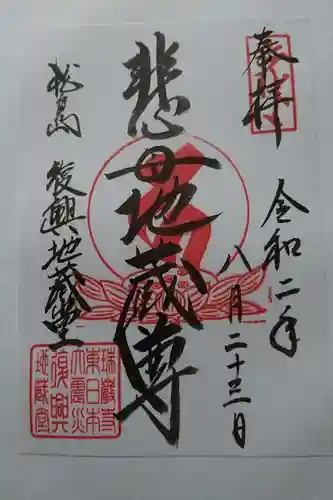 奉拝
令和二年
八月二十三日
悲母地蔵尊
松島
復興地蔵堂
瑞巌寺
東日本
大震災
復興
地蔵堂